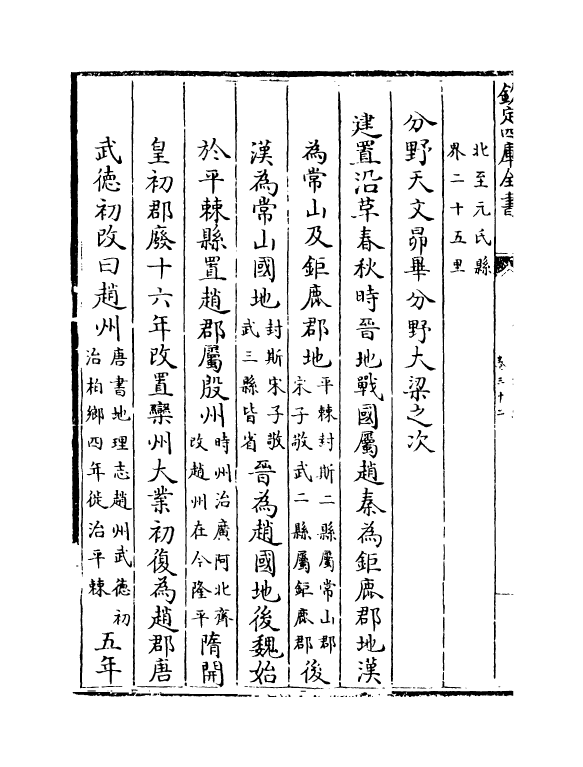 欽定四庫全書
卷三十二
北至元氏縣
界二十五里
分野天文昴畢分野大梁之次
建置沿革春秋時晉地戰國屬趙秦為鉅鹿郡地漢
為常山及鉅鹿郡地平棘封斯二縣屬常山郡宋子敬武二縣屬鉅鹿郡後
漢為常山國地封斯宋子敬武三縣皆省晉為趙國地後魏始
於平棘縣置趙郡屬殷州時州治廣阿北齊改趙州在今隆平隋開
皇初郡廢十六年改置欒州大業初復為趙郡唐
武德初改曰趙州唐書地理志趙州武德初治柏鄉四年徙治平棘五年